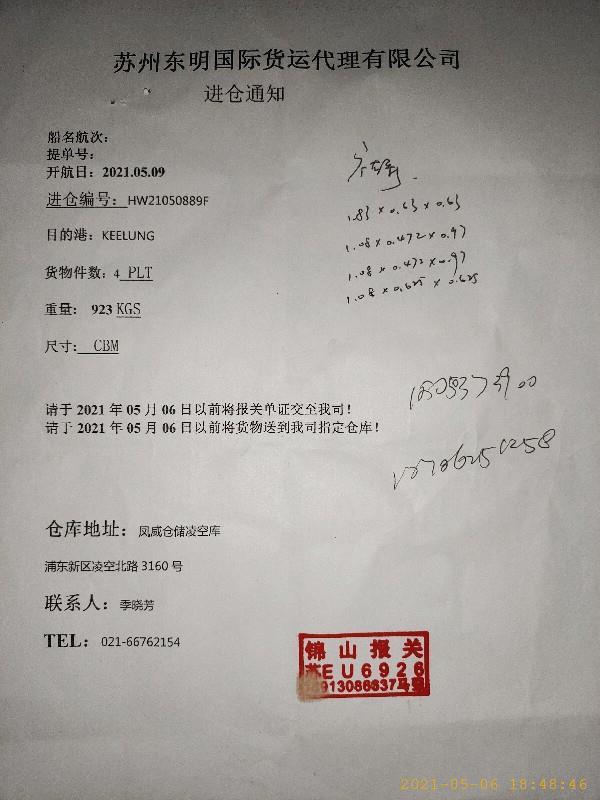 苏州东明国际货运代理有限公司
进仓通知
船名航次：
提单号：
开航日：2021.05.09
进仓编号：HW21050889F
目的港：KEELUNG
货物件数：4 PLT
重量： 923 KGS
尺寸： CBM
1.83 × 0.63 × 0.63
1.08 × 0.472 × 0.97
1.08 × 0.472 × 0.97
1.08 × 0.625 × 0.625
请于 2021 年 05 月 06 日以前将报关单证交至我司！
请于 2021 年 05 月 06 日以前将货物送到我司指定仓库！
仓库地址： 凤威仓储凌空库
浦东新区凌空北路 3160 号
联系人： 季晓芳
TEL： 021-66762154
锦山报关
苏EU6926
2021-05-06 18:48:46